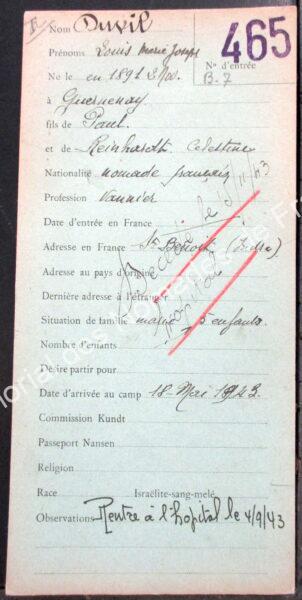 Nom Duvil
465
Prénoms Louis Marie Joseph
N° d'entrée
B-7
Né le en 1891 2 Nov.
à Guernenay
fils de Paul
et de Reinhardt Celestine
Nationalité nomade français
Profession Vannier
Date d'entrée en France
Adresse en France St Benoit (Indre)
Adresse au pays d'origine
Dernière adresse à l'étranger
Décédé le 5/11/43
hôpital
Situation de famille marié 5 enfants
Nombre d'enfants
De ire partir pour
Date d'arrivée au camp 18-Mai 1943
Commission Kundt
Passeport Nansen
Religion
Race Israëlite-sang-mêlé
Observations Rentre à l'hopital le 4/9/43